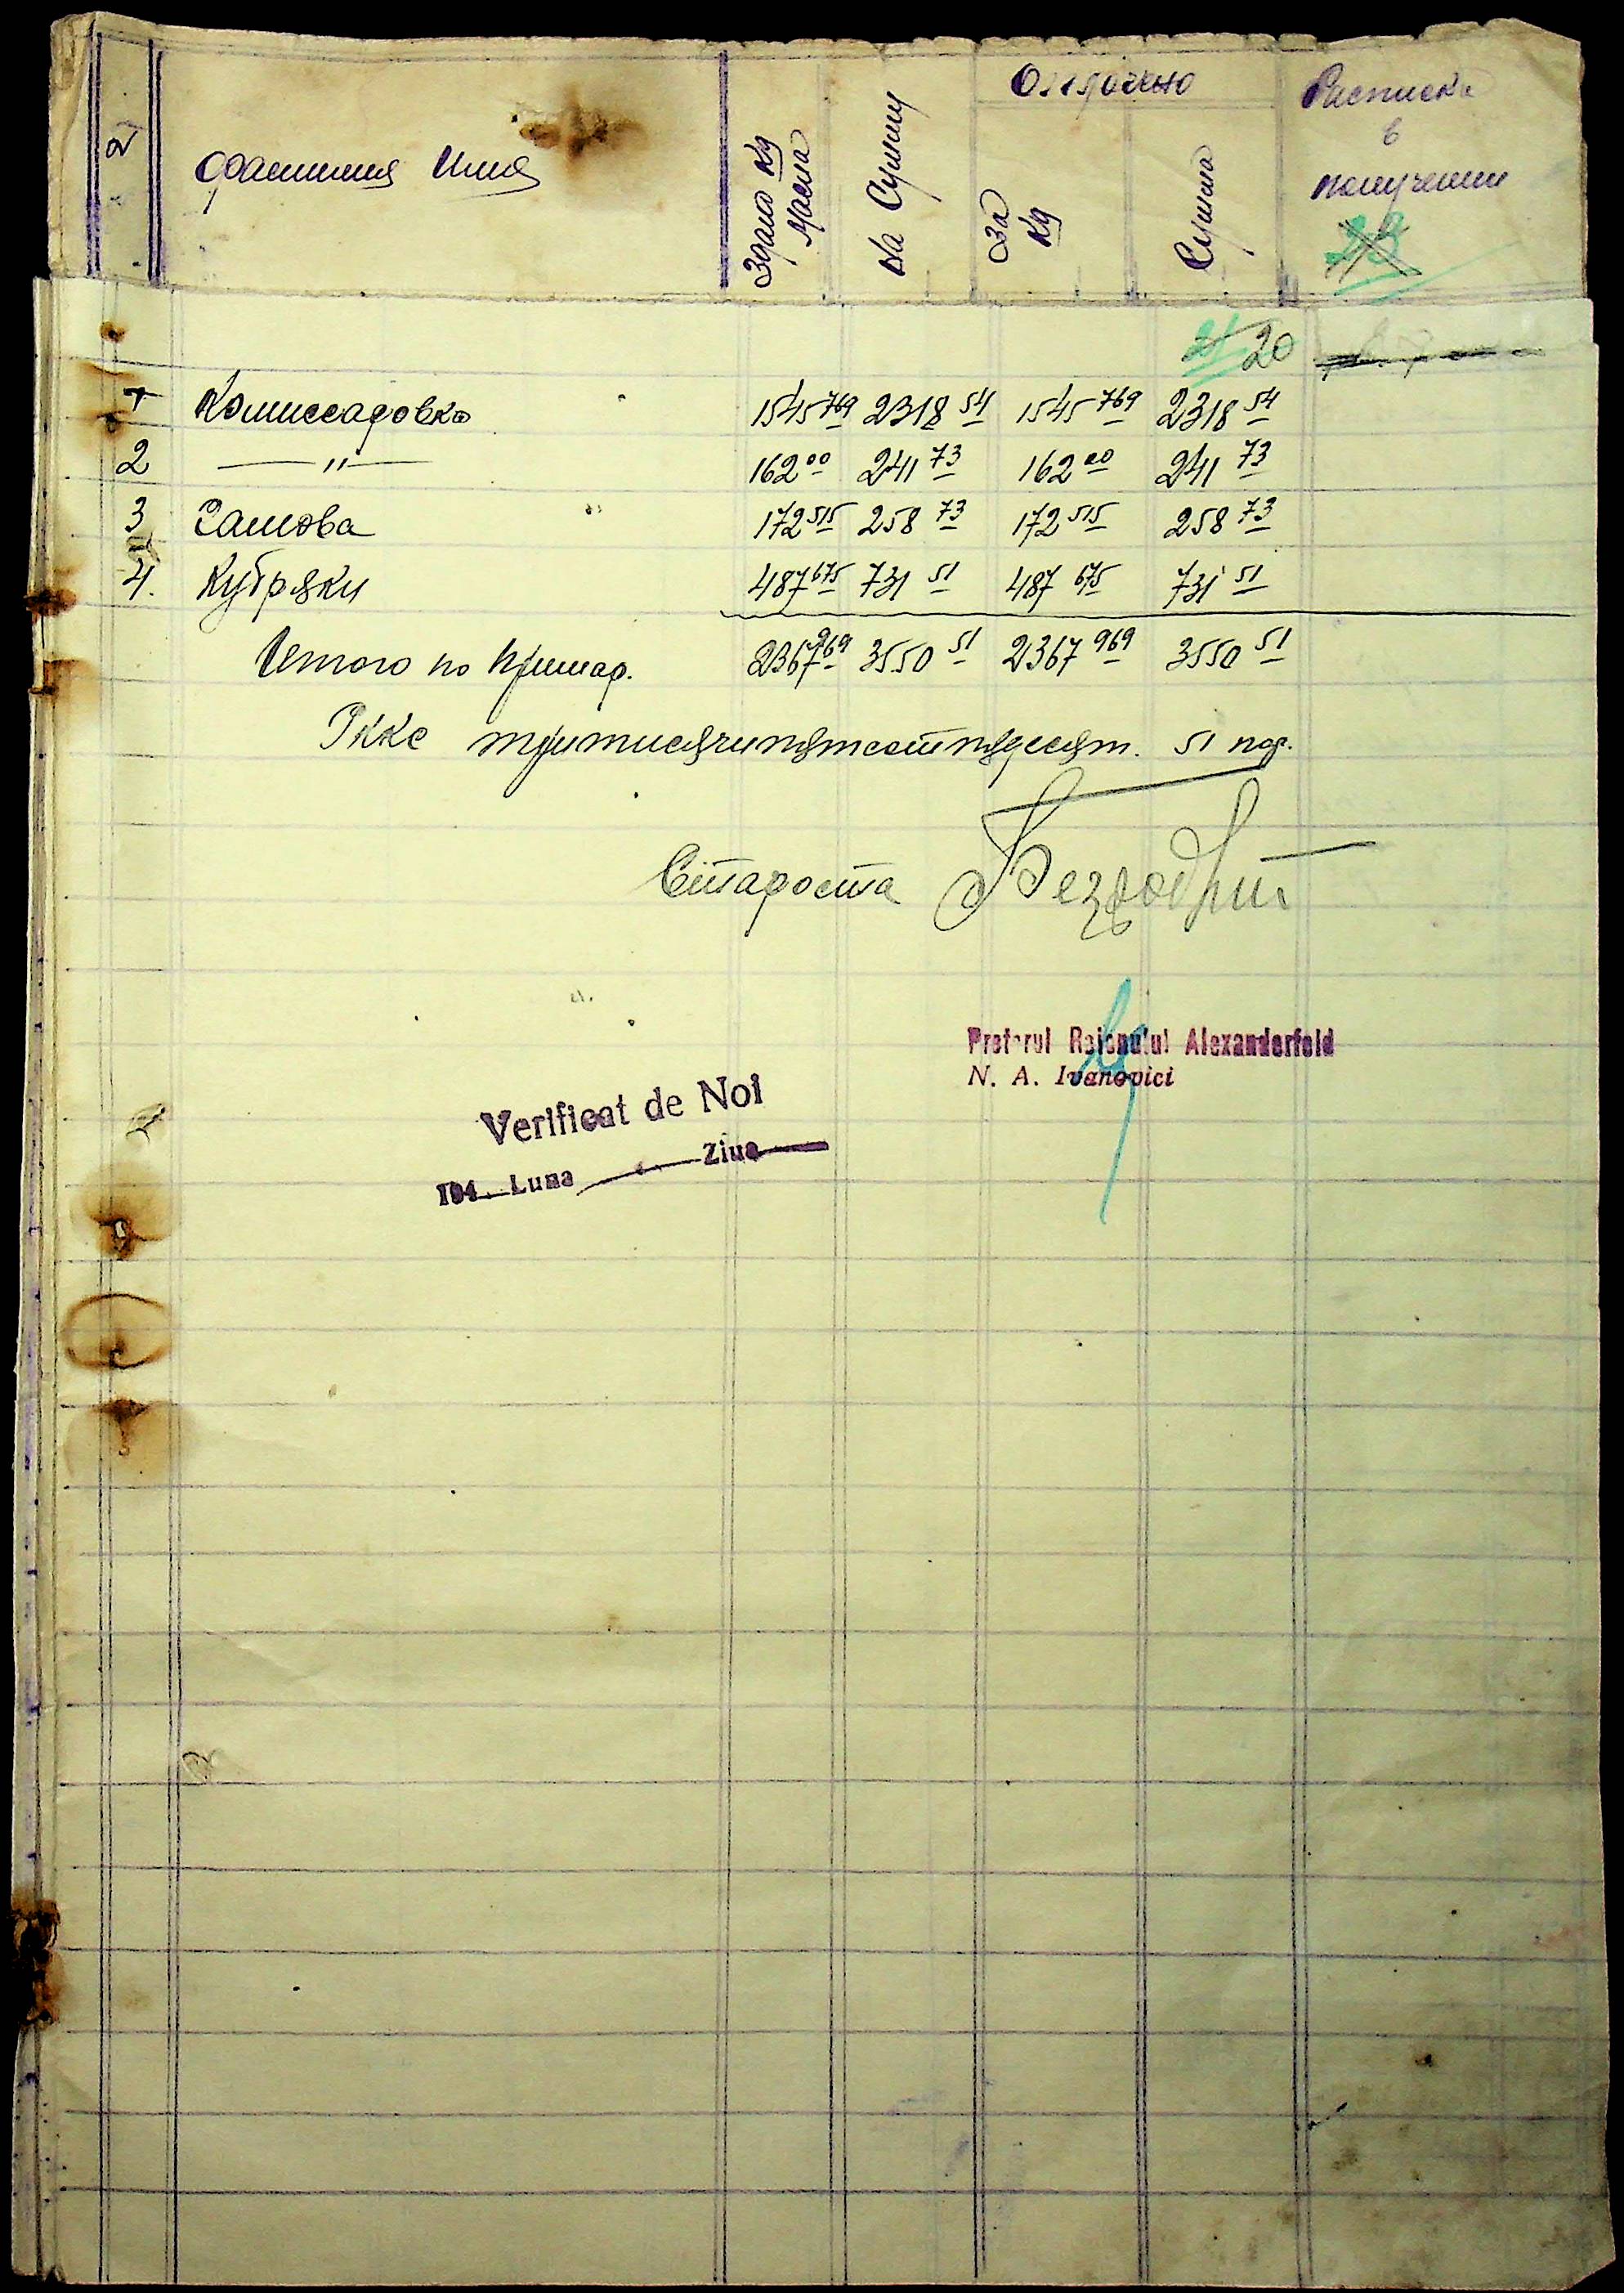 № Фамилия Имя Здано кg Масла На Сумму Оплачено За кg Сумма Расписка в получении
23
21 20
1 Комиссаровка 1545 769 2318 54 1545 769 2318 54
2 —〃— 162 00 241 73 162 00 241 73
3 Рашова 172 515 258 73 172 515 258 73
4. Кубряки 487 675 731 51 487 675 731 51
Итого по Примар. 2367 969 3550 51 2367 969 3550 51
Ркке тритисячипятсотпядесят. 51 пф.
Староста
Pretorul Raionului Alexanderfeld
N. A. Ivanovici
Verificat de Noi
194 Luna Ziua